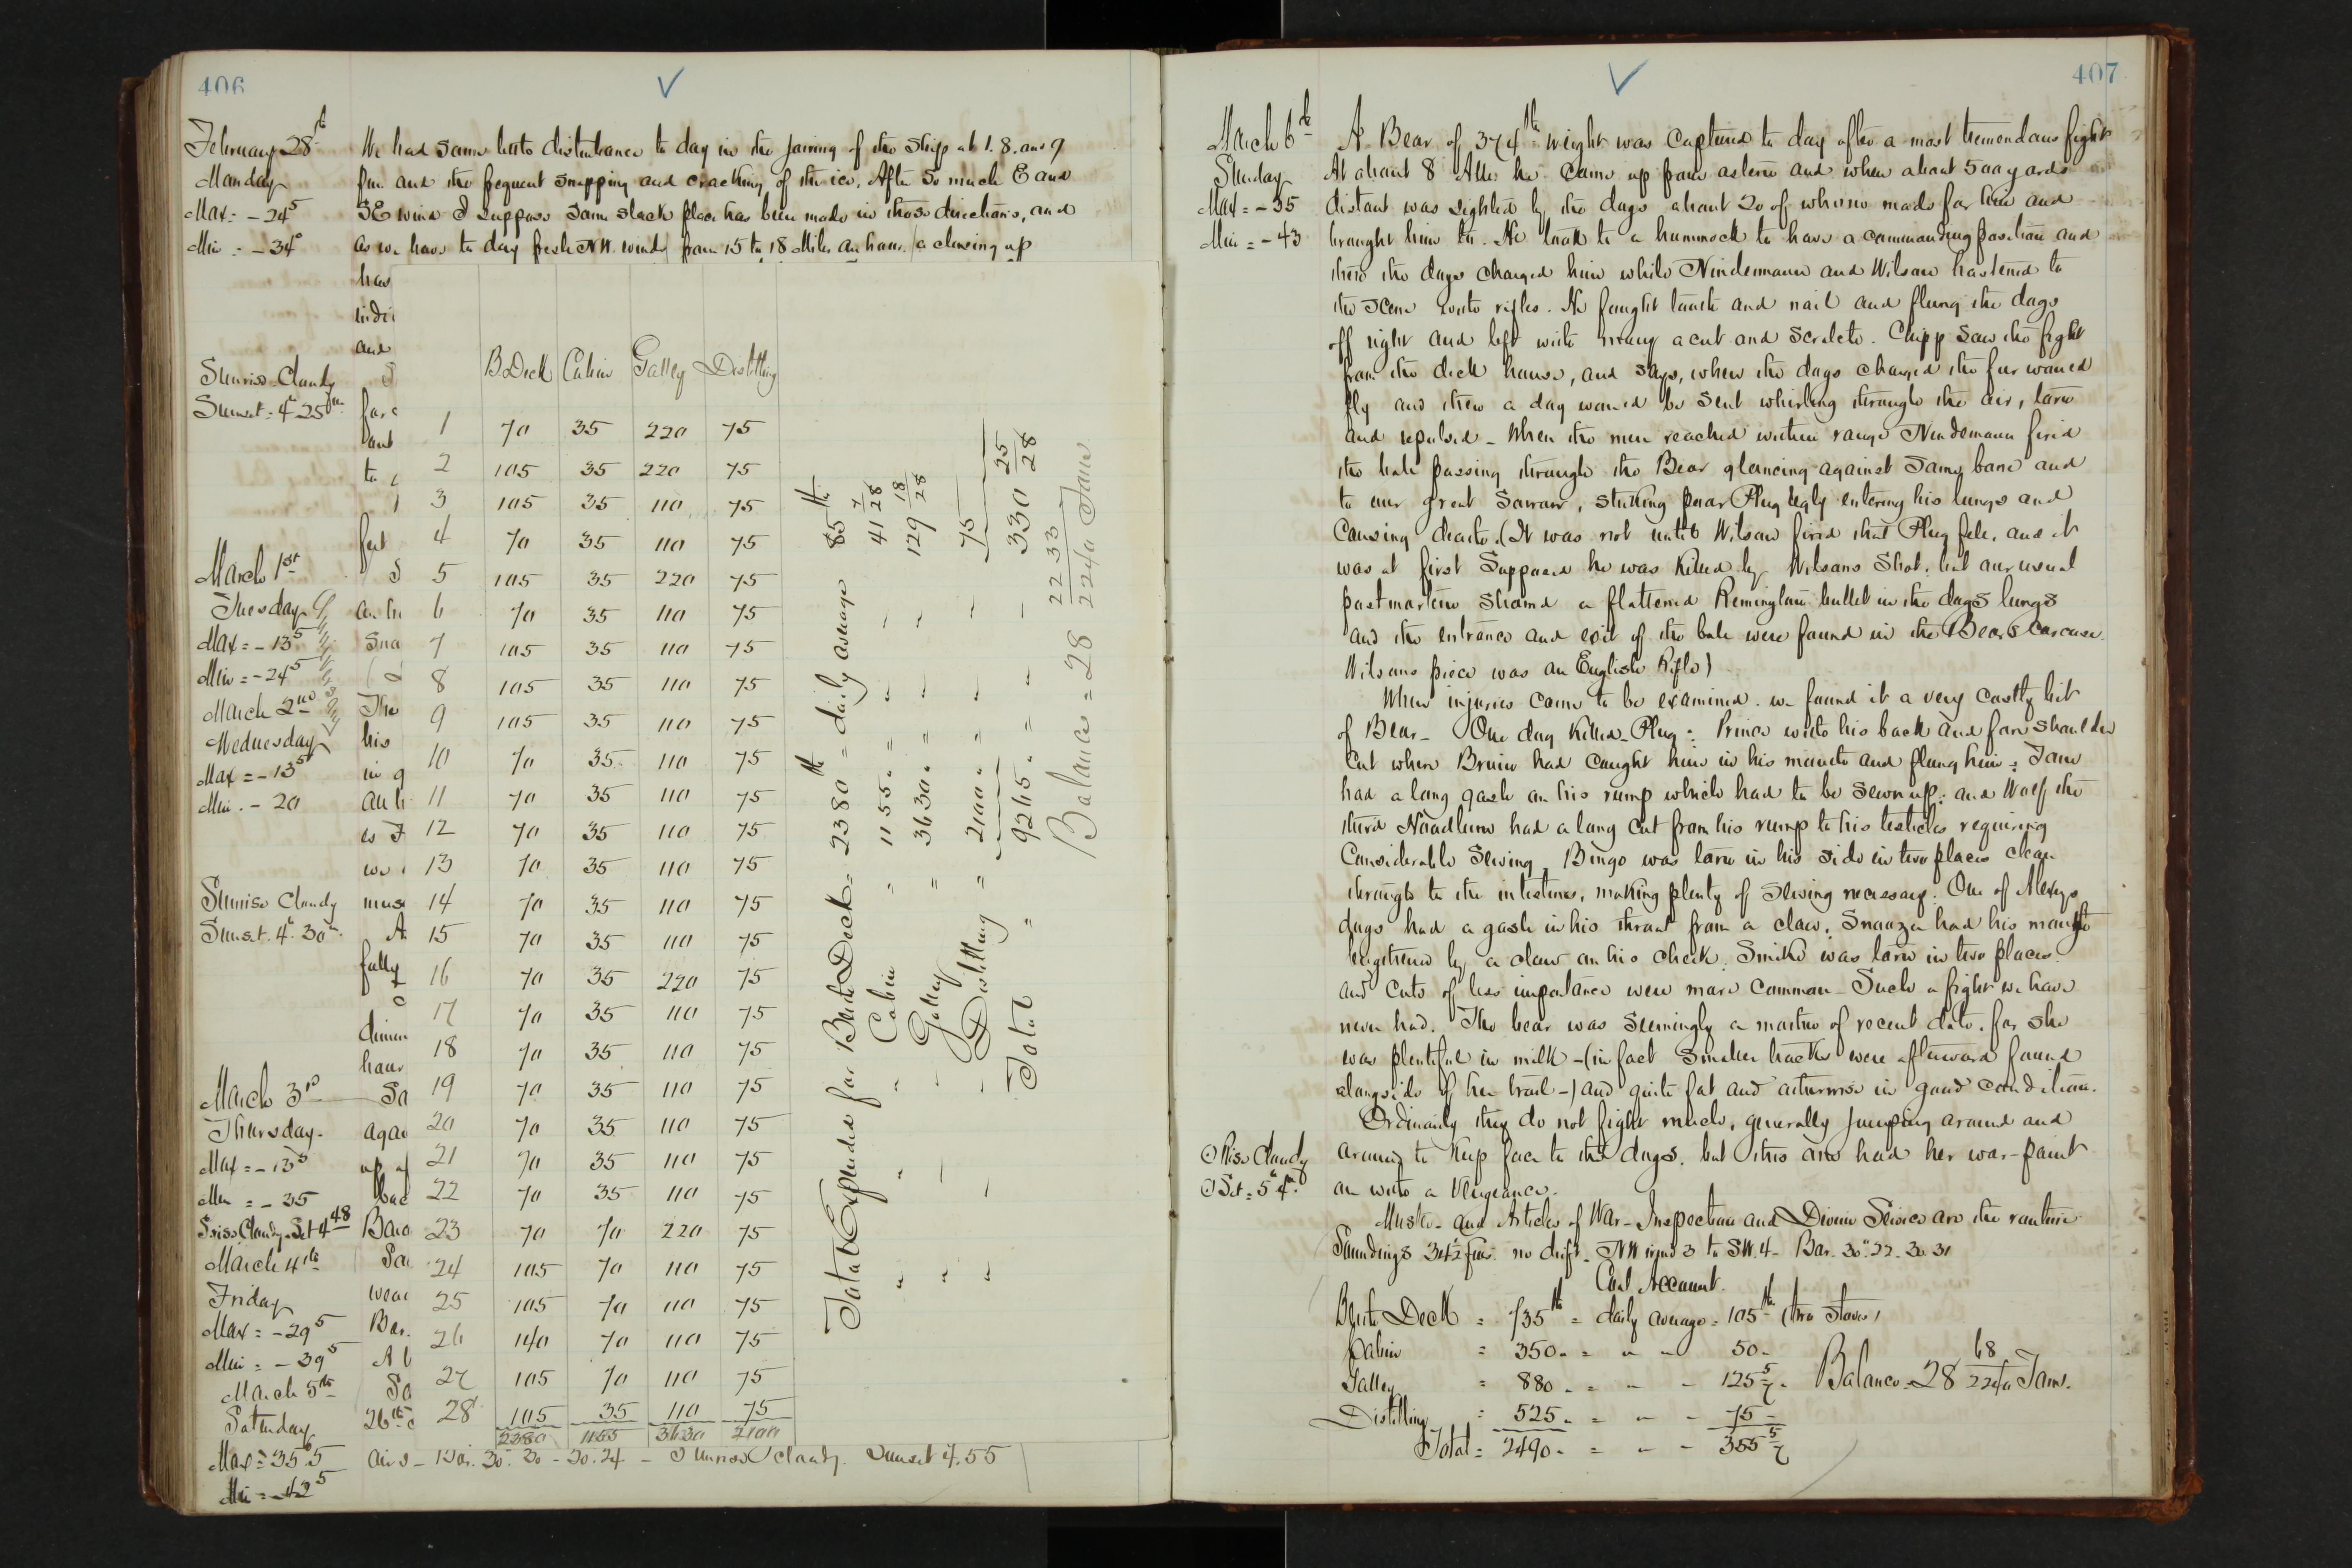 406
February 28th
Monday
Max = -24⁵
Min = -34°
We had some little disturbance to day in the jarring of the ship at 1. 8. and 9
p.m. and the frequent snapping and cracking of the ice. After so much E and
SE wind I suppose some slack place has been made in those directions, and
as we have to day fresh NW. winds from 15 to 18 miles an hour, a closing up
has
indi
and
Sunrise Cloudy
Sunset = 4h 25m
S
for
ant
to
fast
March 1st
Tuesday
Max = -13⁵
Min = -24⁵
March 2nd
Wednesday
Max = -13⁵
Min. - 20
S
an h
Sna
The
his
in g
an h
is I
we
Sunrise Cloudy
Sunset. 4h. 30m
musk
A
fully
dimin
hour
March 3rd
Thursday
Max = -13⁵
Min = -35
S rise Cloudy. Set 4 48
March 4th
Friday
Max = -29⁵
Min = -39⁵
March 5th
Saturday
Max = -35.5
Min = -42⁵
So
agai
up af
bac
Baro
Sou
wea
Bar.
A l
So
26th
airs - Bar. 30. 20 - 30. 24 - Sunrise cloudy. Sunset 4.55
B Deck Cabin Galley Distilling
1 70 35 220 75
2 105 35 220 75
3 105 35 110 75
4 70 35 110 75
5 105 35 220 75
6 70 35 110 75
7 105 35 110 75
8 105 35 110 75
9 105 35 110 75
10 70 35 110 75
11 70 35 110 75
12 70 35 110 75
13 70 35 110 75
14 70 35 110 75
15 70 35 110 75
16 70 35 220 75
17 70 35 110 75
18 70 35 110 75
19 70 35 110 75
20 70 35 110 75
21 70 35 110 75
22 70 35 110 75
23 70 70 220 75
24 105 70 110 75
25 105 70 110 75
26 140 70 110 75
27 105 70 110 75
28 105 35 110 75
2380 1155 3630 2100
Total Expended for Berth Deck = 2380 lb = daily average 85 lb
" " " Cabin " 1155 " = " " 41 7/28
" " " Galley " 3630 " = " " 129 18/28
" " " Distilling " 2100 " = " " 75
Total " 9265 " = " " 330 25/28
Balance = 28 2233/2240 Tons
407
March 6th
Sunday
Max = -35
Min = -43
A Bear of 374 lb weight was captured to day after a most tremendous fight
At about 8 AM he came up from astern and when about 500 yards
distant was sighted by the dogs about 20 of whom made for him and
brought him to. He took to a hummock to have a commanding position and
there the dogs charged him while Nindemann and Wilson hastened to
the scene with rifles. He fought tooth and nail and flung the dogs
off right and left with many a cut and scratch. Chipp saw the fight
from the deck house, and says, when the dogs charged the fur would
fly and then a dog would be sent whirling through the air, torn
and repulsed - When the men reached within range Nindemann fired
the ball passing through the Bear glancing against some bone and
to our great sorrow, striking poor Plug Ugly entering his lungs and
causing death. (It was not until Wilson fired that Plug fell, and it
was at first supposed he was killed by Wilsons shot, but our usual
postmortem showed a flattened Remington bullet in the dogs lungs
and the entrance and exit of the ball were found in the Bears carcase.
Wilsons piece was an English Rifle)
When injuries came to be examined. we found it a very costly bit
of Bear - One dog killed - Plug : Prince with his back and fore shoulder
cut where Bruin had caught him in his mouth and flung him : Tom
had a long gash on his rump which had to be sewn up : and Wolf the
third Hoodlum had a long cut from his rump to his testicles requiring
considerable sewing. Bingo was torn in his side in two places clean
through to the intestines, making plenty of sewing necessary. One of Alexeys
dogs had a gash in his throat from a claw. Snoozer had his mouth
lengthened by a claw on his cheek. Smike was torn in two places.
and cuts of less importance were more common - Such a fight we have
never had. The bear was seemingly a mother of recent date, for she
was plentiful in milk - (in fact smaller tracks were afterward found
alongside of her trail -) and quite fat and otherwise in good condition.
Ordinarily they do not fight much, generally jumping around and
around to keep face to the dogs. but this one had her war-paint
on with a vengeance.
⊙ Rise Cloudy
⊙ Set = 5h 4m
Muster and Articles of War - Inspection and Divine Service are the routine
Soundings 34½ fms. no drift - NW wind 3 to SW. 4 - Bar. 30". 22 - 30. 31
Coal Account.
Berth Deck = 735 lb = daily average = 105 lb (two stoves)
Cabin = 350 " = " " 50 "
Galley = 880 " = " " 125 5/7 "
Distilling = 525 " = " " 75 "
Total = 2490 " = " " 355 5/7
Balance = 28 68/2240 Tons.